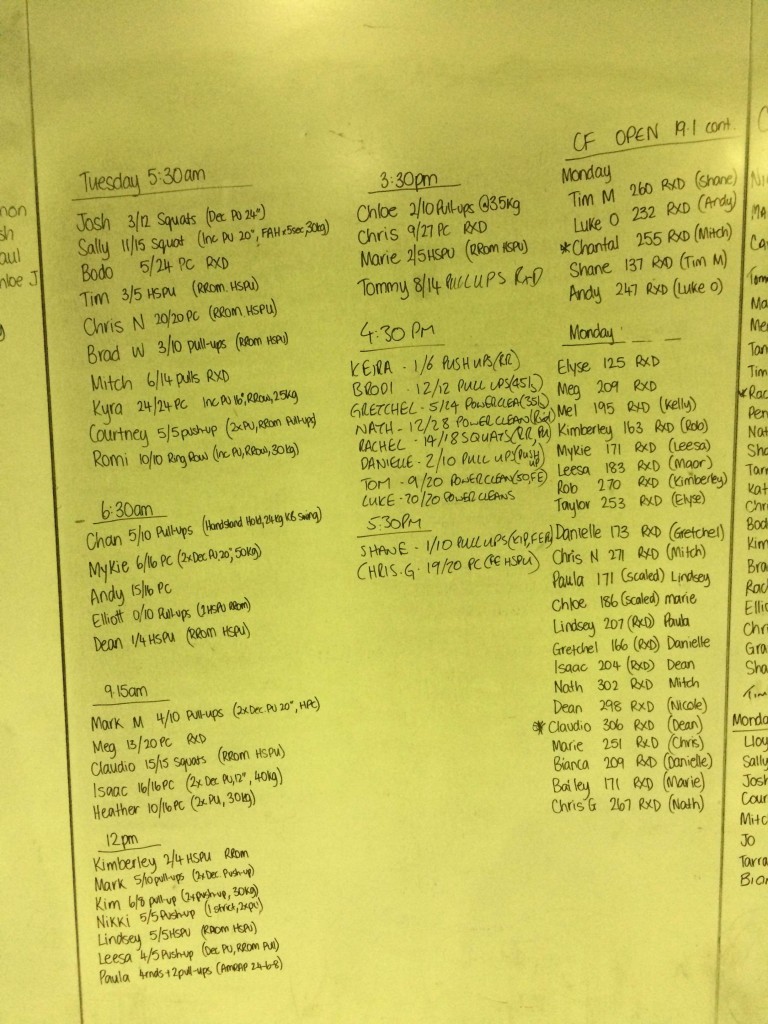 non
sh
aul
hloe J
Tuesday 5:30am
Josh 3/12 Squats (Dec PU 24")
Sally 11/15 Squat (Inc PU 20", FAH x5sec, 30kg)
Bodo 5/24 PC RXD
Tim 3/5 HSPU (RROM HSPU)
Chris N 20/20 PC (RROM HSPU)
Brad W 3/10 Pull-ups (RROM HSPU)
Mitch 6/14 Pulls RXD
Kyra 24/24 PC Inc PU 16", RRow, 25kg
Courtney 5/5 push-up (2xPU, RROM Pull-ups)
Romi 10/10 Ring Row (Inc PU, RRow, 30kg)
6:30am
Chan 5/10 Pull-ups (Handstand Hold, 24kg KB Swing)
Mykie 6/16 PC (2xDec PU, 20", 50kg)
Andy 15/16 PC
Elliott 0/10 Pull-ups (1 HSPU RROM)
Dean 1/4 HSPU (RROM HSPU)
9.15am
Mark M 4/10 Pull-ups (2xDec PU 20", HPC)
Meg 13/20 PC RXD
Claudio 15/15 Squats (RROM HSPU)
Isaac 16/16 PC (2x Dec PU, 12", 40kg)
Heather 10/16 PC (2xPU, 30kg)
12pm
Kimberley 2/4 HSPU RROM
Mark 5/10 pull-ups (2xDec Push-up)
Kim 6/8 pull-up (2xpush-up, 30kg)
Nikki 5/5 Push-up (1 strict, 2xpu)
Lindsey 5/5 HSPU (RROM HSPU)
Leesa 4/5 Push-up (Dec PU, RROM Pull)
Paula 4rnds + 2 pull-ups (AMRAP 24-6-8)
3:30pm
Chloe 2/10 Pull-ups @35kg
Chris 9/27 PC RXD
Marie 2/5 HSPU (RROM HSPU)
Tommy 8/14 PULLUPS RxD
4:30 PM
KEIRA - 1/6 PUSH UPS (RR)
BRODI - 12/12 PULL UPS (45lb)
GRETCHEL - 5/24 POWERCLEA (35lb)
NATH - 12/28 POWERCLEAN (Rxd)
RACHEL - 14/18 SQUATS (RR, PU)
DANIELLE - 2/10 PULL UPS (PUSH UP)
TOM - 9/20 POWERCLEAN (50, FE)
LUKE - 20/20 POWERCLEANS
5:30PM
SHANE - 1/10 PULLUPS (KIP, FER)
CHRIS.G. 19/20 PC (FE HSPU)
CF OPEN 19.1 cont.
Monday
Tim M 260 RXD (Shane)
Luke O 232 RXD (Andy)
*Chantal 255 RXD (Mitch)
Shane 137 RXD (Tim M)
Andy 247 RXD (Luke O)
Monday
Elyse 125 RXD
Meg 209 RXD
Mel 195 RXD (Kelly)
Kimberley 163 RXD (Rob)
Mykie 171 RXD (Leesa)
Leesa 183 RXD (Maor)
Rob 270 RXD (Kimberley)
Taylor 253 RXD (Elyse)
Danielle 173 RXD (Gretchel)
Chris N 271 RXD (Mitch)
Paula 171 (scaled) Lindsey
Chloe 186 (scaled) marie
Lindsey 207 (RXD) Paula
Gretchel 166 (RXD) Danielle
Isaac 204 (RXD) Dean
Nath 302 RXD Mitch
Dean 298 RXD (Nicole)
*Claudio 306 RXD (Dean)
Marie 251 RXD (Chris)
Bianca 209 RXD (Danielle)
Bailey 171 RXD (Marie)
Chris G 267 RXD (Nath)
C
Ni
MA
Ca
Tomm
Ma
Me
Tan
Tim
*Rac
Pen
Nat
Sha
Tam
Kat
Chri
Bod
Kim
Bra
Rac
Ellio
Chri
Gra
Sha
Tim
Monda
Lloy
Sally
Josh
Cour
Mitc
Jo
Tarra
Bian